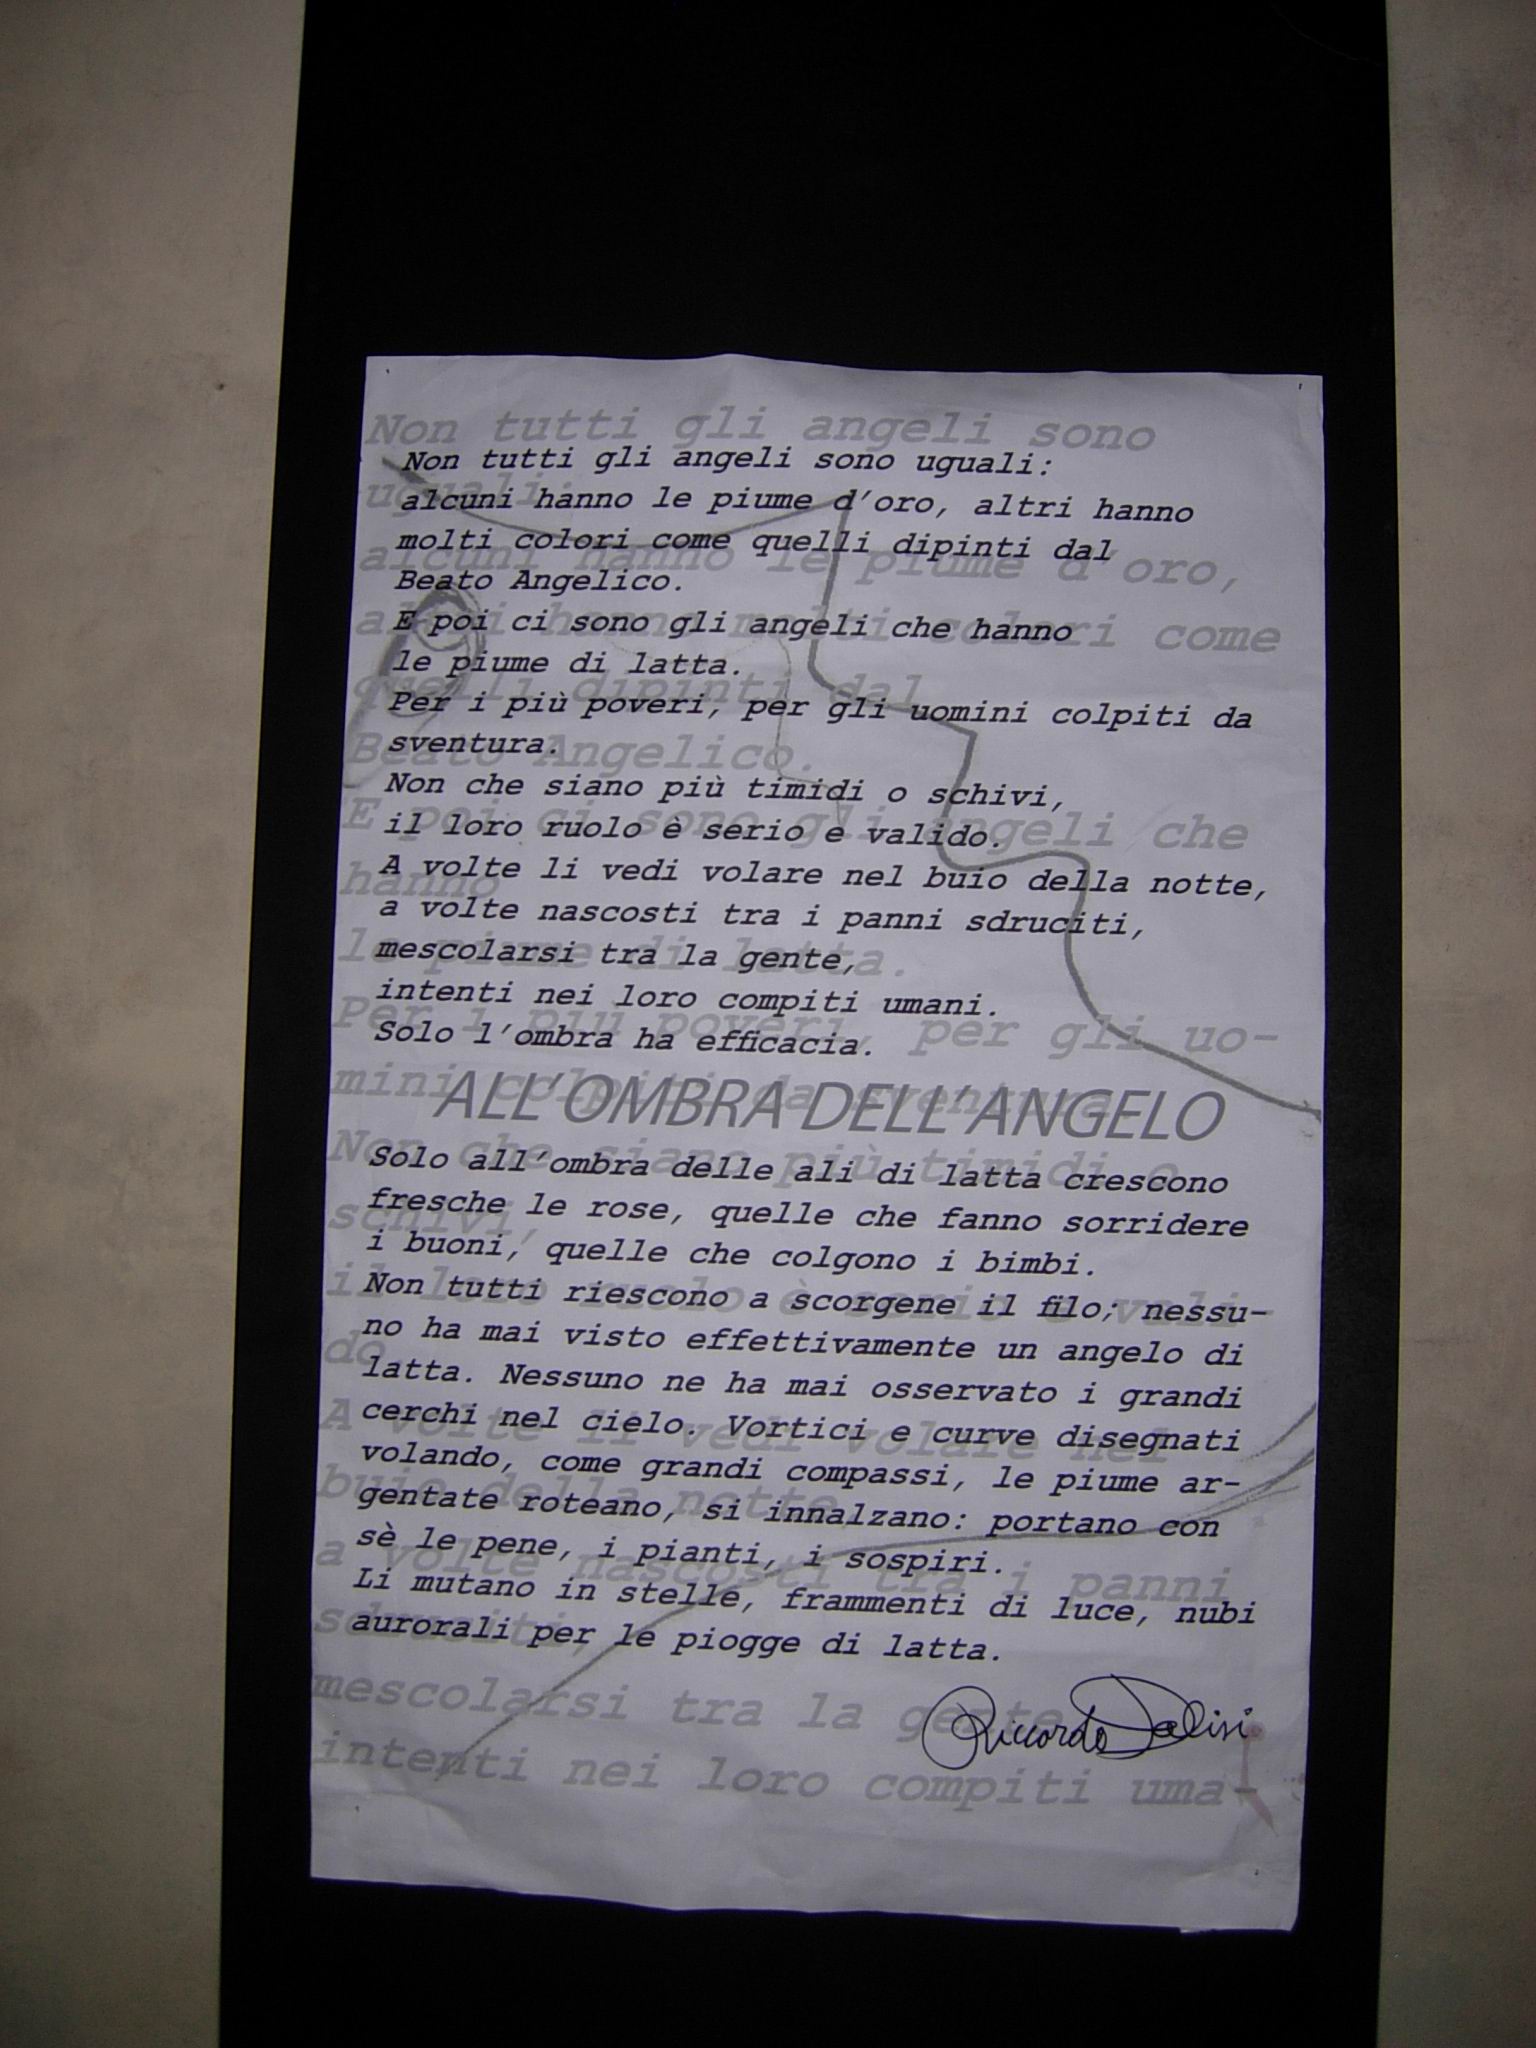 Non tutti gli angeli sono uguali:
alcuni hanno le piume d'oro, altri hanno
molti colori come quelli dipinti dal
Beato Angelico.
E poi ci sono gli angeli che hanno
le piume di latta.
Per i più poveri, per gli uomini colpiti da
sventura.
Non che siano più timidi o schivi,
il loro ruolo è serio e valido.
A volte li vedi volare nel buio della notte,
a volte nascosti tra i panni sdruciti,
mescolarsi tra la gente,
intenti nei loro compiti umani.
Solo l'ombra ha efficacia.
ALL'OMBRA DELL'ANGELO
Solo all'ombra delle ali di latta crescono
fresche le rose, quelle che fanno sorridere
i buoni, quelle che colgono i bimbi.
Non tutti riescono a scorgene il filo; nessu-
no ha mai visto effettivamente un angelo di
latta. Nessuno ne ha mai osservato i grandi
cerchi nel cielo. Vortici e curve disegnati
volando, come grandi compassi, le piume ar-
gentate roteano, si innalzano: portano con
sè le pene, i pianti, i sospiri.
Li mutano in stelle, frammenti di luce, nubi
aurorali per le piogge di latta.
Riccardo Dalisi
Non tutti gli angeli sono
uguali:
alcuni hanno le piume d'oro,
altri hanno molti colori come
quelli dipinti dal
Beato Angelico.
E poi ci sono gli angeli che
hanno
le piume di latta.
Per i più poveri, per gli uo-
mini colpiti da sventura.
Non che siano più timidi o
schivi,
il loro ruolo è serio e vali-
do.
A volte li vedi volare nel
buio della notte,
a volte nascosti tra i panni
sdruciti,
mescolarsi tra la gente,
intenti nei loro compiti uma-